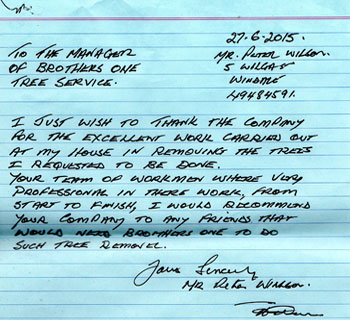 27-6-2015.
TO THE MANAGER
OF BROTHERS ONE
TREE SERVICE.
MR. PETER
5
WINDALE
49484591.
I JUST WISH TO THANK THE COMPANY
FOR THE EXCELLENT WORK CARRIED OUT
AT MY HOUSE IN REMOVING THE TREES
I REQUESTED TO BE DONE.
YOUR TEAM OF WORKMEN WHERE VERY
PROFESSIONAL IN THERE WORK, FROM
START TO FINISH, I WOULD RECOMMEND
YOUR COMPANY TO ANY FRIENDS THAT
WOULD NEED BROTHERS ONE TO DO
SUCH TREE REMOVEL.
Yours Sincerely
MR PETER